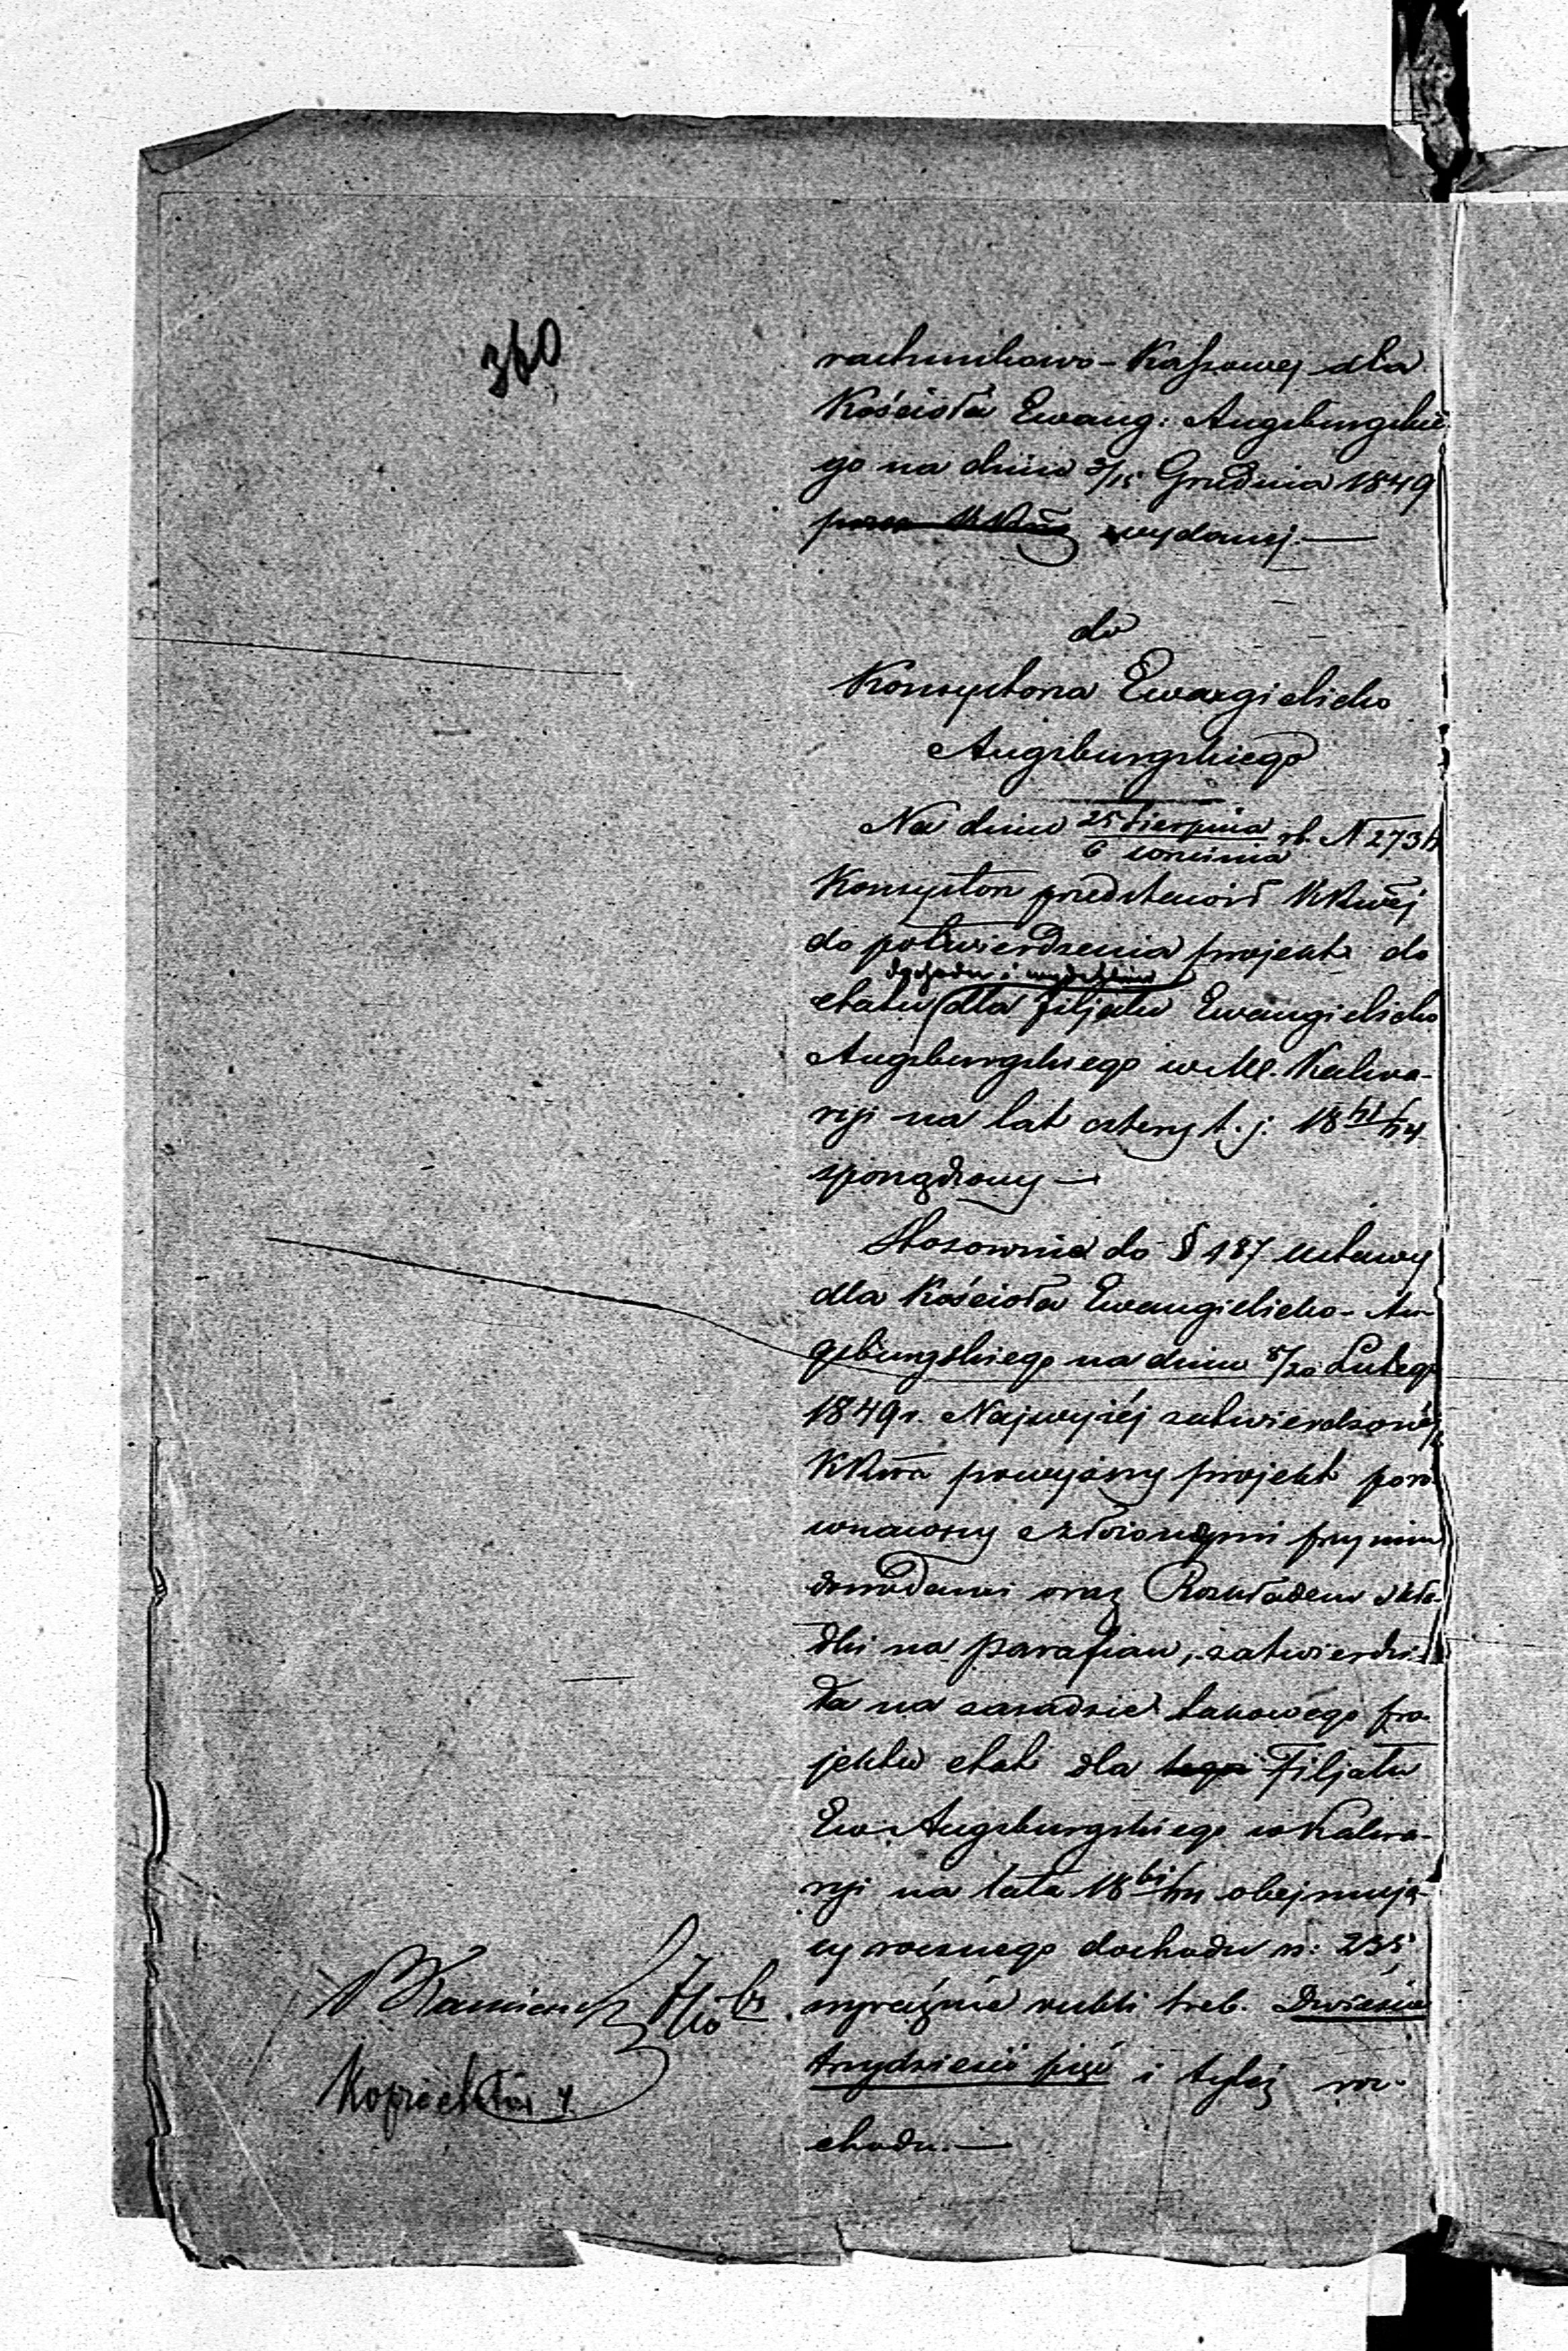 360
rachunkowo-Kassowej dla
Kościoła Ewang: Augsburgskie
go na dniu 3/15 Grudnia 1849
przez wydanej.—
do
Konsystorza Ewangielicko
Augsburgskiego
Na dniu 25 Sierpnia rb. N 273
6 września
Konsystorz przedstawił KRwéj
do potwierdzenia projekt do
dochodu i wydatków
etatu dla filjału Ewangielicko
Augsburgskiego w M. Kalwa-
ryi na lat cztery t. j. 18
sporządzony —
Stosownie do § 187 ustawy
dla Kościoła Ewangielicko-Au-
gsburgskiego na dniu 8/20 Lutego
1849 r. Najwyżéj zatwierdzonéj
KRwa powyższy projekt poró
wnawszy z złożonymi przy nim
dowodami oraz Rozkładem skła-
dki na parafian, zatwierdzi-
ła na zasadzie takowego pro-
jektu etat dla tego Filjału
Ew. Augsburgskiego w Kalwa-
ryi na lata 18 obejmują-
cy rocznego dochodu rs: 235,
wyraźnie rubli sreb. Dwieście
trzydzieści pięć i tyleż roz-
chodu.—